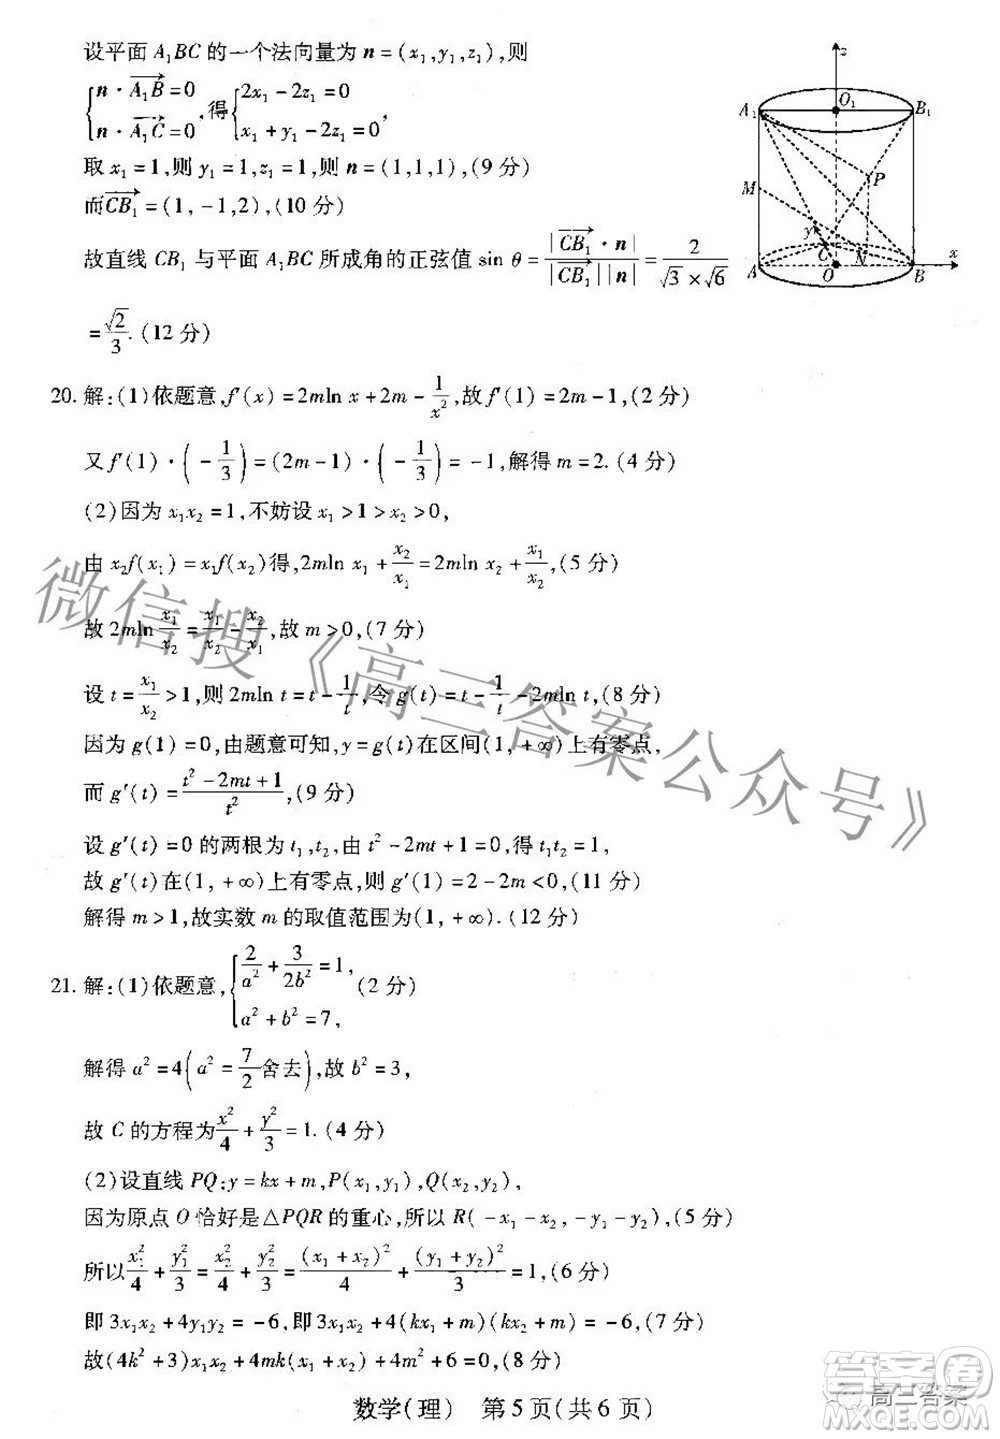 设平面 A₁BC 的一个法向量为 n=(x₁,y₁,z₁),则
{n·A₁B=0 n·A₁C=0,得{2x₁-2z₁=0 x₁+y₁-2z₁=0,
取 x₁=1,则 y₁=1,z₁=1,则 n=(1,1,1),(9 分)
而CB₁=(1,-1,2),(10 分)
故直线 CB₁ 与平面 A₁BC 所成角的正弦值 sin θ=|CB₁·n|/|CB₁||n|=2/(√3×√6)
=√2/3.(12 分)
z
A₁ O₁ B₁
M P
y
C N
A O B x
20. 解:(1)依题意,f′(x)=2mln x+2m-1/x²,故f′(1)=2m-1,(2 分)
又 f′(1)·(-1/3)=(2m-1)·(-1/3)=-1,解得 m=2.(4 分)
(2)因为 x₁x₂=1,不妨设 x₁>1>x₂>0,
由 x₂f(x₁)=x₁f(x₂)得,2mln x₁+x₂/x₁=2mln x₂+x₁/x₂,(5 分)
故 2mln x₁/x₂=x₁/x₂-x₂/x₁,故 m>0,(7 分)
设 t=x₁/x₂>1,则 2mln t=t-1/t,令 g(t)=t-1/t-2mln t,(8 分)
因为 g(1)=0,由题意可知,y=g(t)在区间(1,+∞)上有零点,
而 g′(t)=(t²-2mt+1)/t²,(9 分)
设 g′(t)=0 的两根为 t₁,t₂,由 t²-2mt+1=0,得 t₁t₂=1,
故 g′(t)在(1,+∞)上有零点,则 g′(1)=2-2m<0,(11 分)
解得 m>1,故实数 m 的取值范围为(1,+∞).(12 分)
21. 解:(1)依题意,{2/a²+3/2b²=1, a²+b²=7,(2 分)
解得 a²=4(a²=7/2舍去),故 b²=3,
故 C 的方程为x²/4+y²/3=1.(4 分)
(2)设直线 PQ:y=kx+m,P(x₁,y₁),Q(x₂,y₂),
因为原点 O 恰好是△PQR 的重心,所以 R(-x₁-x₂,-y₁-y₂),(5 分)
所以x₁²/4+y₁²/3=x₂²/4+y₂²/3=(x₁+x₂)²/4+(y₁+y₂)²/3=1,(6 分)
即 3x₁x₂+4y₁y₂=-6,即 3x₁x₂+4(kx₁+m)(kx₂+m)=-6,(7 分)
故(4k²+3)x₁x₂+4mk(x₁+x₂)+4m²+6=0,(8 分)
数学(理) 第 5 页(共 6 页)
微信搜《高三答案公众号》
高三答案
答案圈
MXQE.COM